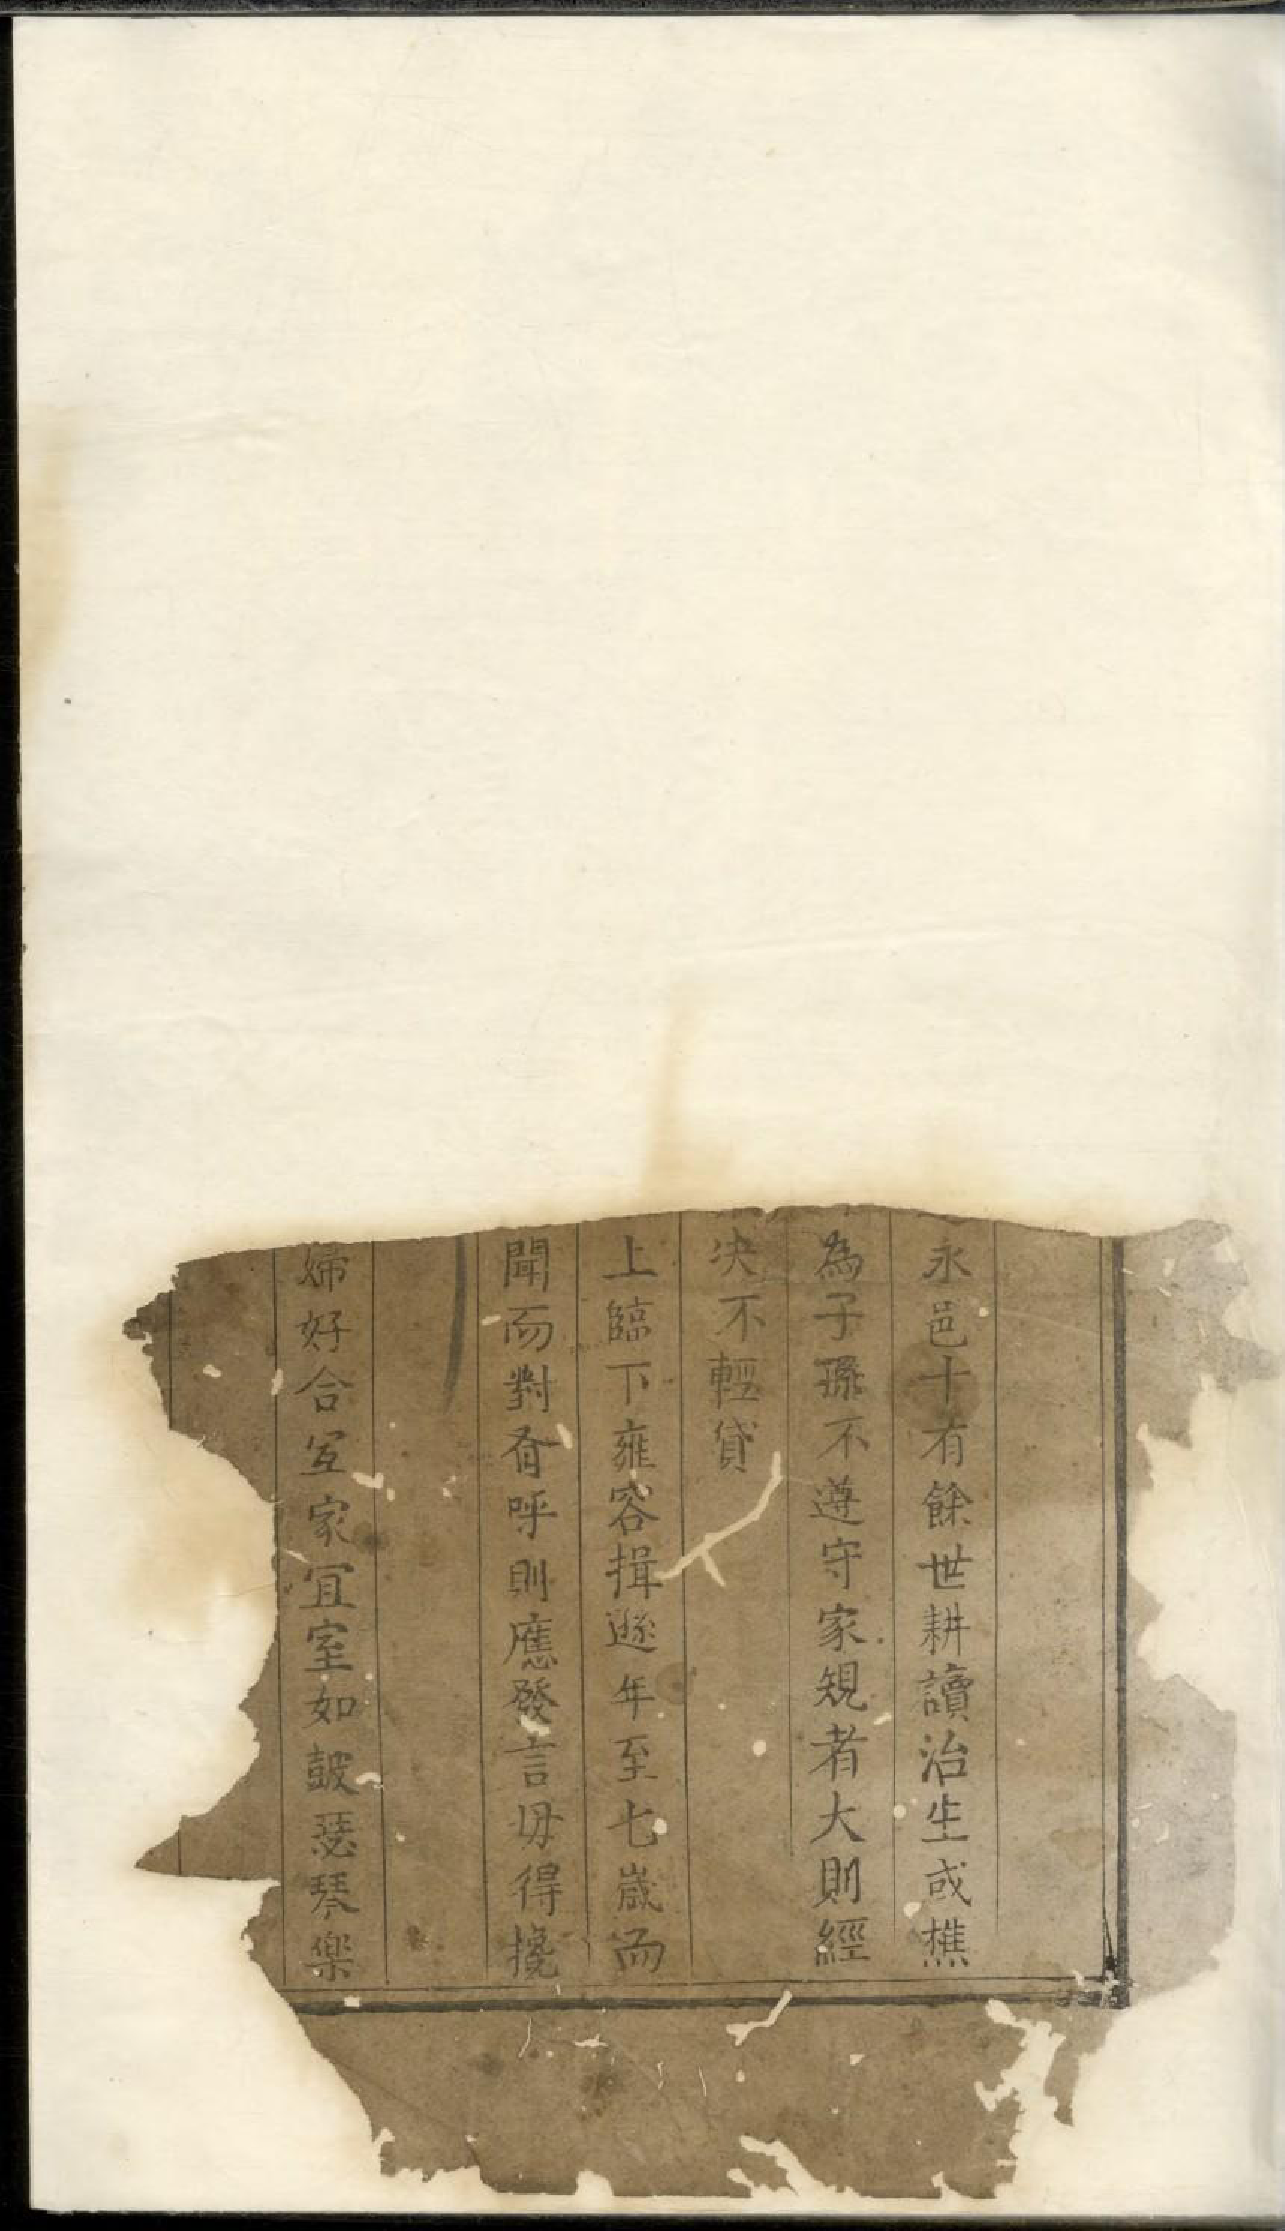 永邑十有餘世耕讀治生或樵
為子孫不遵守家規者大則經
决不輕貸
上臨下雍容揖遜年至七嵗而
聞而對脊呼則應發言毋得攙
婦好合宜家宜室如皷瑟琴樂